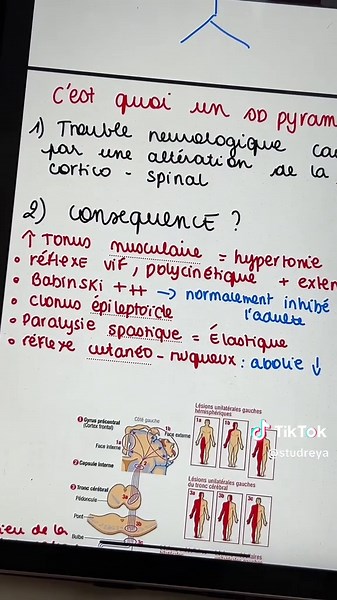 C'est quoi un SD pyram
1) Trouble neurologique ca
par une altération de la
cortico - spinal
2) consequence ?
↑ Tonus musculaire = hypertonie
• réflexe vif, polycinétique + exten
• Babinski ++ → normalement inhibé
l'adulte
• clonus épileptoïde
• Paralysie spastique = Élastique
• réflexe cutanéo-muqueux : abolie ↓
Lésions unilatérales gauches
hémisphériques
1 Gyrus précentral
(Cortex frontal)
Côté gauche
1a
1b
Face externe
Face interne
1a
1b
2 Capsule interne
TikTok
@studreya
3 Tronc cérébral
Pédoncule
Lésions unilatérales gauches
du tronc cérébral
3a
3b
3c
3a
Pont
Bulbe
ieu de la